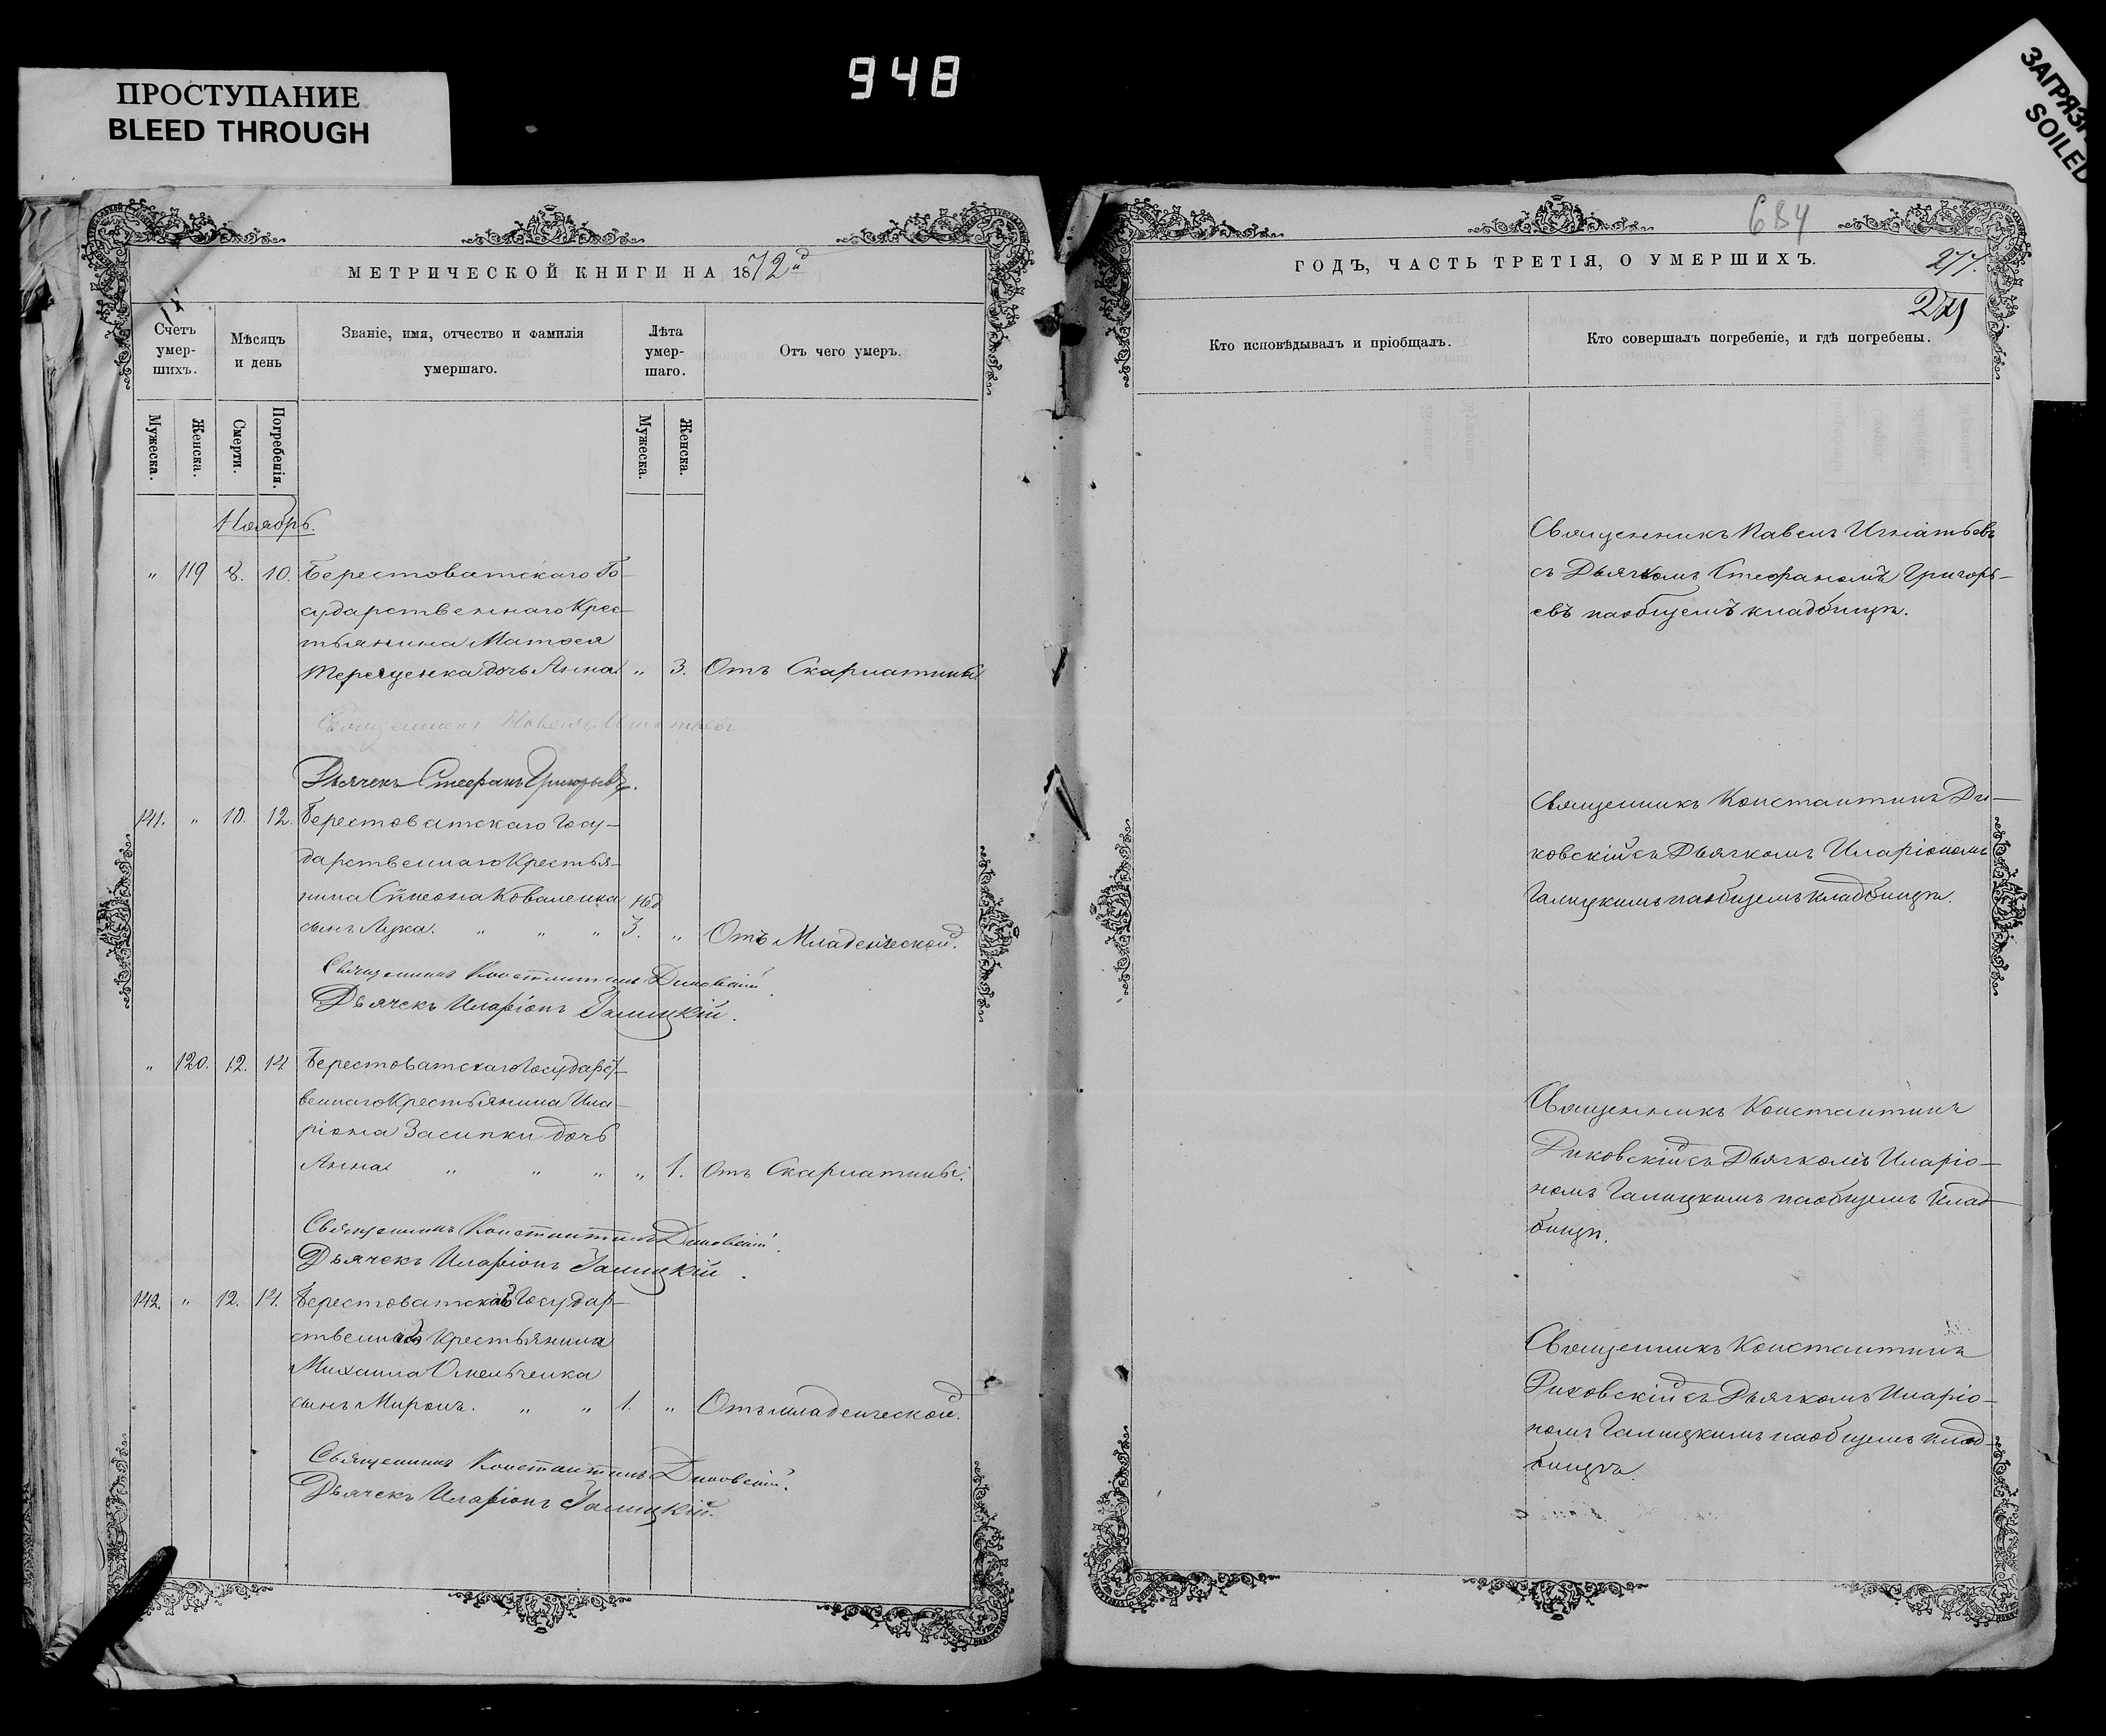 948
ПРОСТУПАНИЕ
BLEED THROUGH
ЗАГРЯЗН
SOILED
МЕТРИЧЕСКОЙ КНИГИ НА 1872й
Счетъ умер-шихъ.
Мѣсяцъ и день
Званіе, имя, отчество и фамилія умершаго.
Лѣта умер-шаго.
Отъ чего умеръ.
Мужеска.
Женска.
Смерти.
Погребенія.
Мужеска.
Женска.
Ноябрь.
" 119 8. 10. Берестоватскаго Го-
сударственнаго Крес-
тьянина Матѳея
Терещенка дочь Анна " 3. Отъ Скарлатины
Священникъ Павелъ Игнатьевъ
Дьячекъ Стефанъ Григорьевъ.
141. " 10. 12. Берестоватскаго Госу-
дарственнаго Крестья-
нина Симеона Коваленка нед
сынъ Лука. " " " 3. " Отъ Младенческой.
Священникъ Константинъ Диковскій
Дьячекъ Иларіонъ Галицкій.
" 120. 12. 14 Берестоватскаго Государст-
веннаго Крестьянина Ила-
ріона Засипки дочь
Анна " " " " 1. Отъ Скарлатины.
Священникъ Константинъ Диковскій.
Дьячекъ Иларіонъ Галицкій.
142. " 12. 14. Берестоватскаго Государ-
ственнаго Крестьянина
Михаила Омельченка
сынъ Миронъ. " " 1. " Отъ младенческой.
Священникъ Константинъ Диковскій.
Дьячекъ Иларіонъ Галицкій.
684
ГОДЪ, ЧАСТЬ ТРЕТІЯ, О УМЕРШИХЪ.
277.
Кто исповѣдывалъ и пріобщалъ.
Кто совершалъ погребеніе, и гдѣ погребены.
Священникъ Павелъ Игнатьевъ
съ Дьячкомъ Стефаномъ Григорь-
евъ на общемъ кладбищѣ.
Священникъ Константинъ Ди-
ковскій съ Дьячкомъ Иларіономъ
Галицкимъ на общемъ кладбищѣ.
Священникъ Константинъ
Диковскій съ Дьячкомъ Иларіо-
номъ Галицкимъ на общемъ клад-
бищѣ.
Священникъ Константинъ
Диковскій съ Дьячкомъ Иларіо-
номъ Галицкимъ на общемъ клад-
бищѣ.